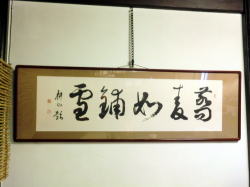 蕎麦如鋪雪